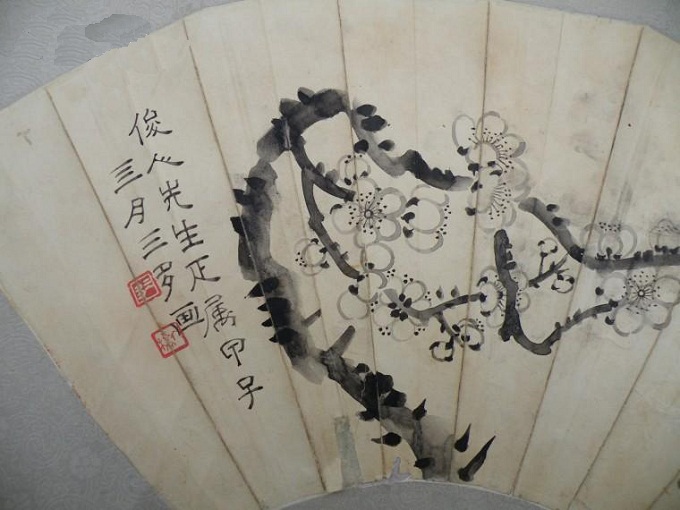 俊心先生疋属甲子
三月三多画